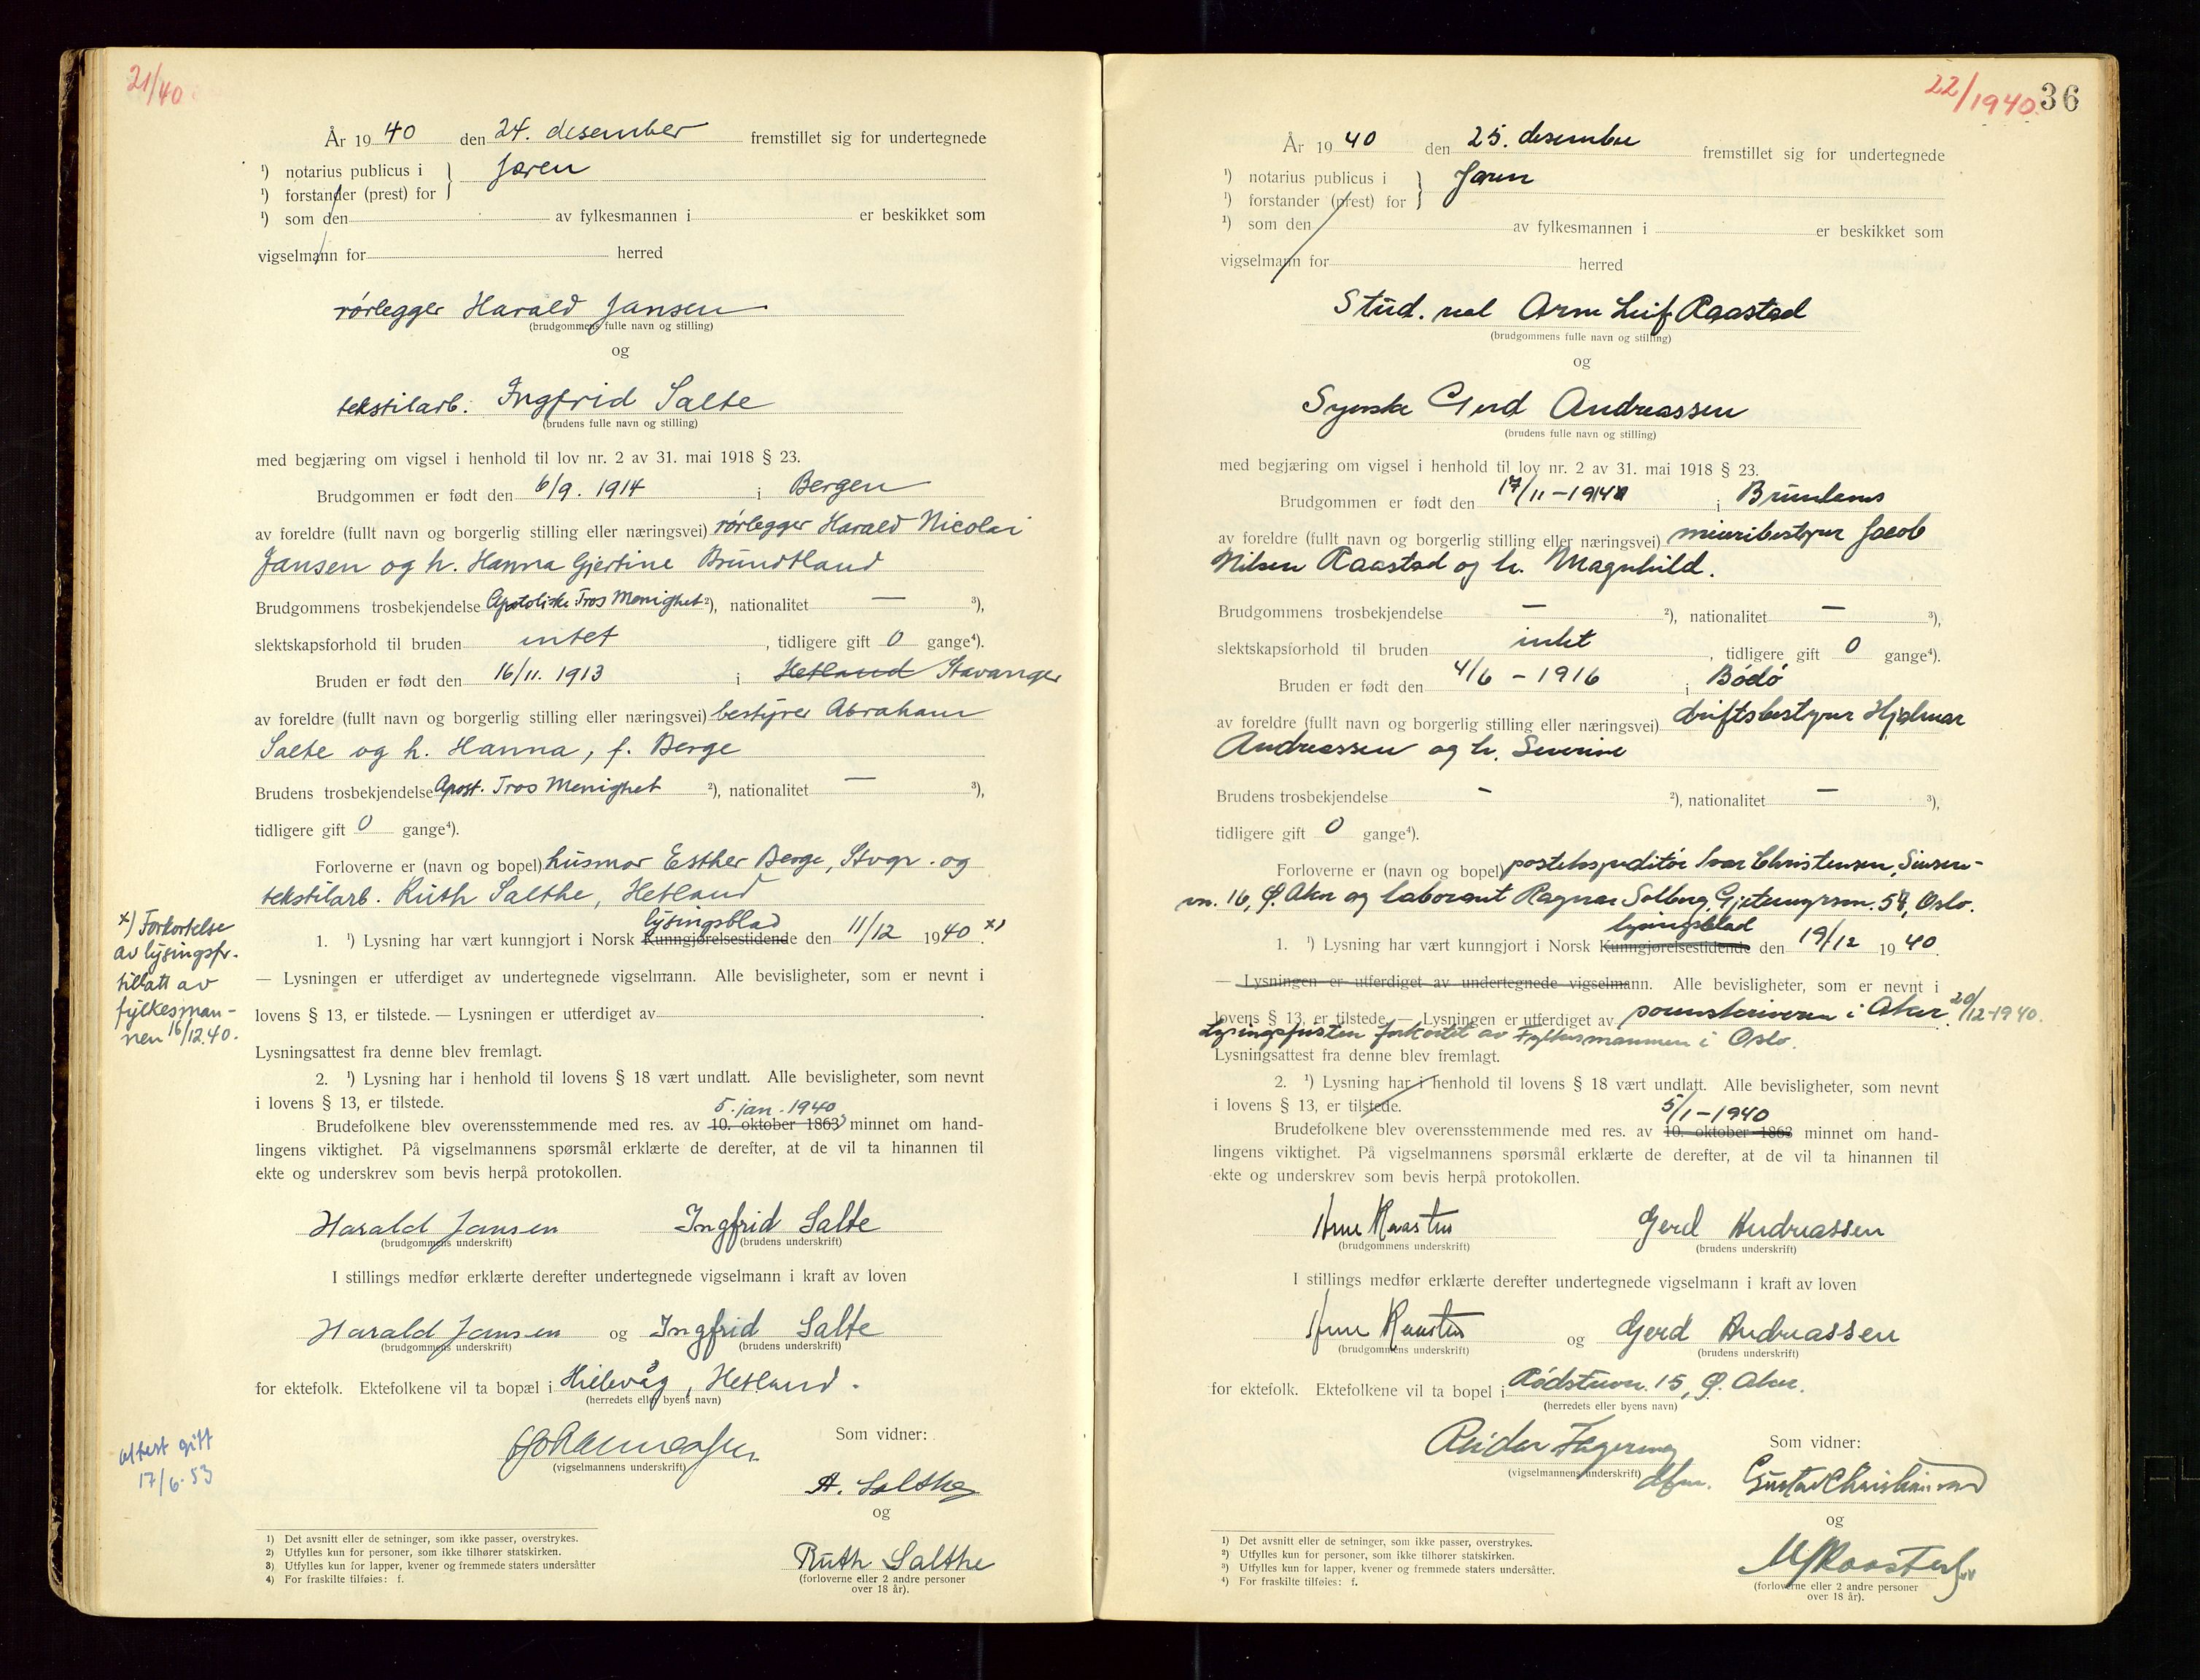 21/40
År 1940 den 24. desember fremstillet sig for undertegnede
¹) notarius publicus i } Jæren
¹) forstander (prest) for
¹) som den av fylkesmannen i er beskikket som
vigselmann for herred
rørlegger Harald Jansen
(brudgommens fulle navn og stilling)
og
tekstilarb. Ingfrid Salte
(brudens fulle navn og stilling)
med begjæring om vigsel i henhold til lov nr. 2 av 31. mai 1918 § 23.
Brudgommen er født den 6/9. 1914 i Bergen
av foreldre (fullt navn og borgerlig stilling eller næringsvei) rørlegger Harald Nicolai
Jansen og h. Hanna Gjertine Brundtland
Brudgommens trosbekjendelse Apostoliske Tros Menighet ²), nationalitet — ³),
slektskapsforhold til bruden intet, tidligere gift 0 gange⁴).
Bruden er født den 16/11. 1913 i Hetland Stavanger
av foreldre (fullt navn og borgerlig stilling eller næringsvei) bestyrer Abraham
Salte og h. Hanna, f. Berge
Brudens trosbekjendelse Apost. Tros Menighet ²), nationalitet — ³),
tidligere gift 0 gange⁴).
Forloverne er (navn og bopel) husmor Esther Berge, Stvgr. og
tekstilarb. Ruth Salthe, Hetland
lysingsblad
1. ¹) Lysning har vært kunngjort i Norsk Kunngjørelsestidende den 11/12 1940. x)
— Lysningen er utferdiget av undertegnede vigselmann. Alle bevisligheter, som er nevnt i
lovens § 13, er tilstede. — Lysningen er utferdiget av
Lysningsattest fra denne blev fremlagt.
x) Forkortelse
av lysingsfr.
tillatt av
fylkesman-
nen 16/12.40.
2. ¹) Lysning har i henhold til lovens § 18 vært undlatt. Alle bevisligheter, som nevnt
i lovens § 13, er tilstede.
5. jan. 1940
Brudefolkene blev overensstemmende med res. av 10. oktober 1863 minnet om hand-
lingens viktighet. På vigselmannens spørsmål erklærte de derefter, at de vil ta hinannen til
ekte og underskrev som bevis herpå protokollen.
Harald Jansen Ingfrid Salte
(brudgommens underskrift) (brudens underskrift)
I stillings medfør erklærte derefter undertegnede vigselmann i kraft av loven
Harald Jansen og Ingfrid Salte
(brudgommens underskrift) (brudens underskrift)
for ektefolk. Ektefolkene vil ta bopæl i Hillevåg, Hetland.
(herredets eller byens navn)
(vigselmannens underskrift)
Som vidner:
A. Salthe
og
Ruth Salthe
(forloverne eller 2 andre personer
over 18 år).
attest gitt
17/6.53
1) Det avsnitt eller de setninger, som ikke passer, overstrykes.
2) Utfylles kun for personer, som ikke tilhører statskirken.
3) Utfylles kun for lapper, kvener og fremmede staters undersåtter
4) For fraskilte tilføies: f.
22/1940. 36
År 1940 den 25. desember fremstillet sig for undertegnede
¹) notarius publicus i } Jæren
¹) forstander (prest) for
¹) som den av fylkesmannen i er beskikket som
vigselmann for herred
Stud. real Arne Leif Raastad
(brudgommens fulle navn og stilling)
og
Syerske Gerd Andreassen
(brudens fulle navn og stilling)
med begjæring om vigsel i henhold til lov nr. 2 av 31. mai 1918 § 23.
Brudgommen er født den 17/11-1914 i Brunlanes
av foreldre (fullt navn og borgerlig stilling eller næringsvei) meieribestyrer Jacob
Nilsen Raastad og h. Magnhild.
Brudgommens trosbekjendelse — ²), nationalitet — ³),
slektskapsforhold til bruden intet, tidligere gift 0 gange⁴).
Bruden er født den 4/6 - 1916 i Bodø
av foreldre (fullt navn og borgerlig stilling eller næringsvei) driftsbestyrer Hjalmar
Andreassen og h. Severine
Brudens trosbekjendelse - ²), nationalitet — ³),
tidligere gift 0 gange⁴).
Forloverne er (navn og bopel) postekspeditør Ivar Christensen, Sinsen-
vn. 16, Ø. Aker og laborant Ragnar Solberg, 58, Oslo.
lysingsblad
1. ¹) Lysning har vært kunngjort i Norsk Kunngjørelsestidende den 19/12 1940.
— Lysningen er utferdiget av undertegnede vigselmann. Alle bevisligheter, som er nevnt i
lovens § 13, er tilstede. — Lysningen er utferdiget av sorenskriveren i Aker 20/12-1940.
Lysingsfristen forkortet av Fylkesmannen i Oslo.
Lysningsattest fra denne blev fremlagt.
2. ¹) Lysning har i henhold til lovens § 18 vært undlatt. Alle bevisligheter, som nevnt
i lovens § 13, er tilstede.
5/1-1940
Brudefolkene blev overensstemmende med res. av 10. oktober 1863 minnet om hand-
lingens viktighet. På vigselmannens spørsmål erklærte de derefter, at de vil ta hinannen til
ekte og underskrev som bevis herpå protokollen.
Arne Raastad Gerd Andreassen
(brudgommens underskrift) (brudens underskrift)
I stillings medfør erklærte derefter undertegnede vigselmann i kraft av loven
Arne Raastad og Gerd Andreassen
(brudgommens underskrift) (brudens underskrift)
for ektefolk. Ektefolkene vil ta bopel i Rødstuvn. 15, Ø. Aker.
(herredets eller byens navn)
Reidar
(vigselmannens underskrift)
Som vidner:
Gustav
og
(forloverne eller 2 andre personer
over 18 år).
1) Det avsnitt eller de setninger, som ikke passer, overstrykes.
2) Utfylles kun for personer, som ikke tilhører statskirken.
3) Utfylles kun for lapper, kvener og fremmede staters undersåtter.
4) For fraskilte tilføies: f.